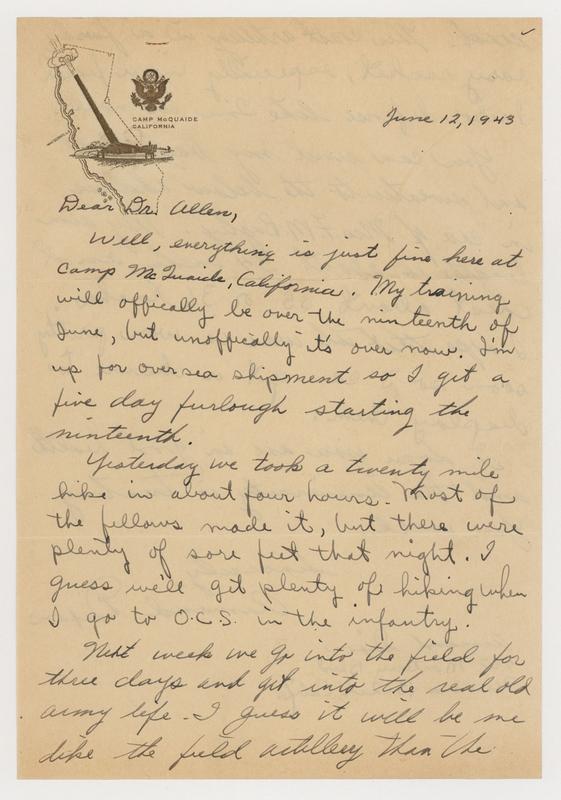 CAMP McQUAIDE
CALIFORNIA
June 12, 1943
Dear Dr. Allen,
Well, everything is just fine here at
Camp McQuaide, California. My training
will offically be over the ninteenth of
June, but unoffically it's over now. I'm
up for oversea shipment so I get a
five day furlough starting the
ninteenth.
Yesterday we took a twenty mile
hike in about four hours. Most of
the fellows made it, but there were
plenty of sore feet that night. I
guess we'll get plenty of hiking when
I go to O.C.S. in the infantry.
Next week we go into the field for
three days and get into the real old
army life. I guess it will be me
like the field artillery than the